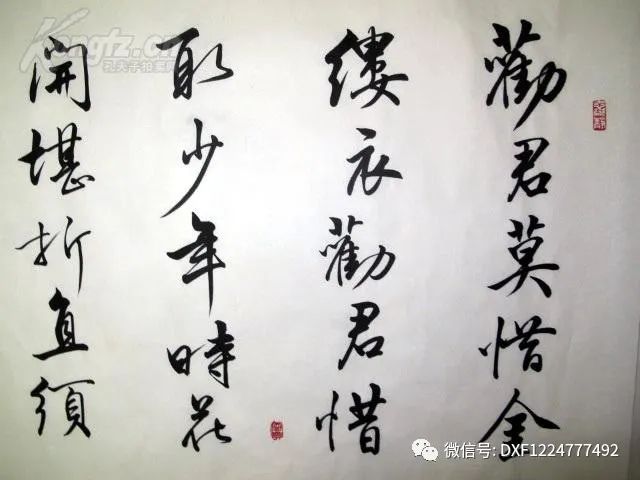 勸君莫惜金
缕衣勸君惜
取少年時花
開堪折直須
Kongfz.cn
孔夫子拍卖网
微信号: DXF1224777492